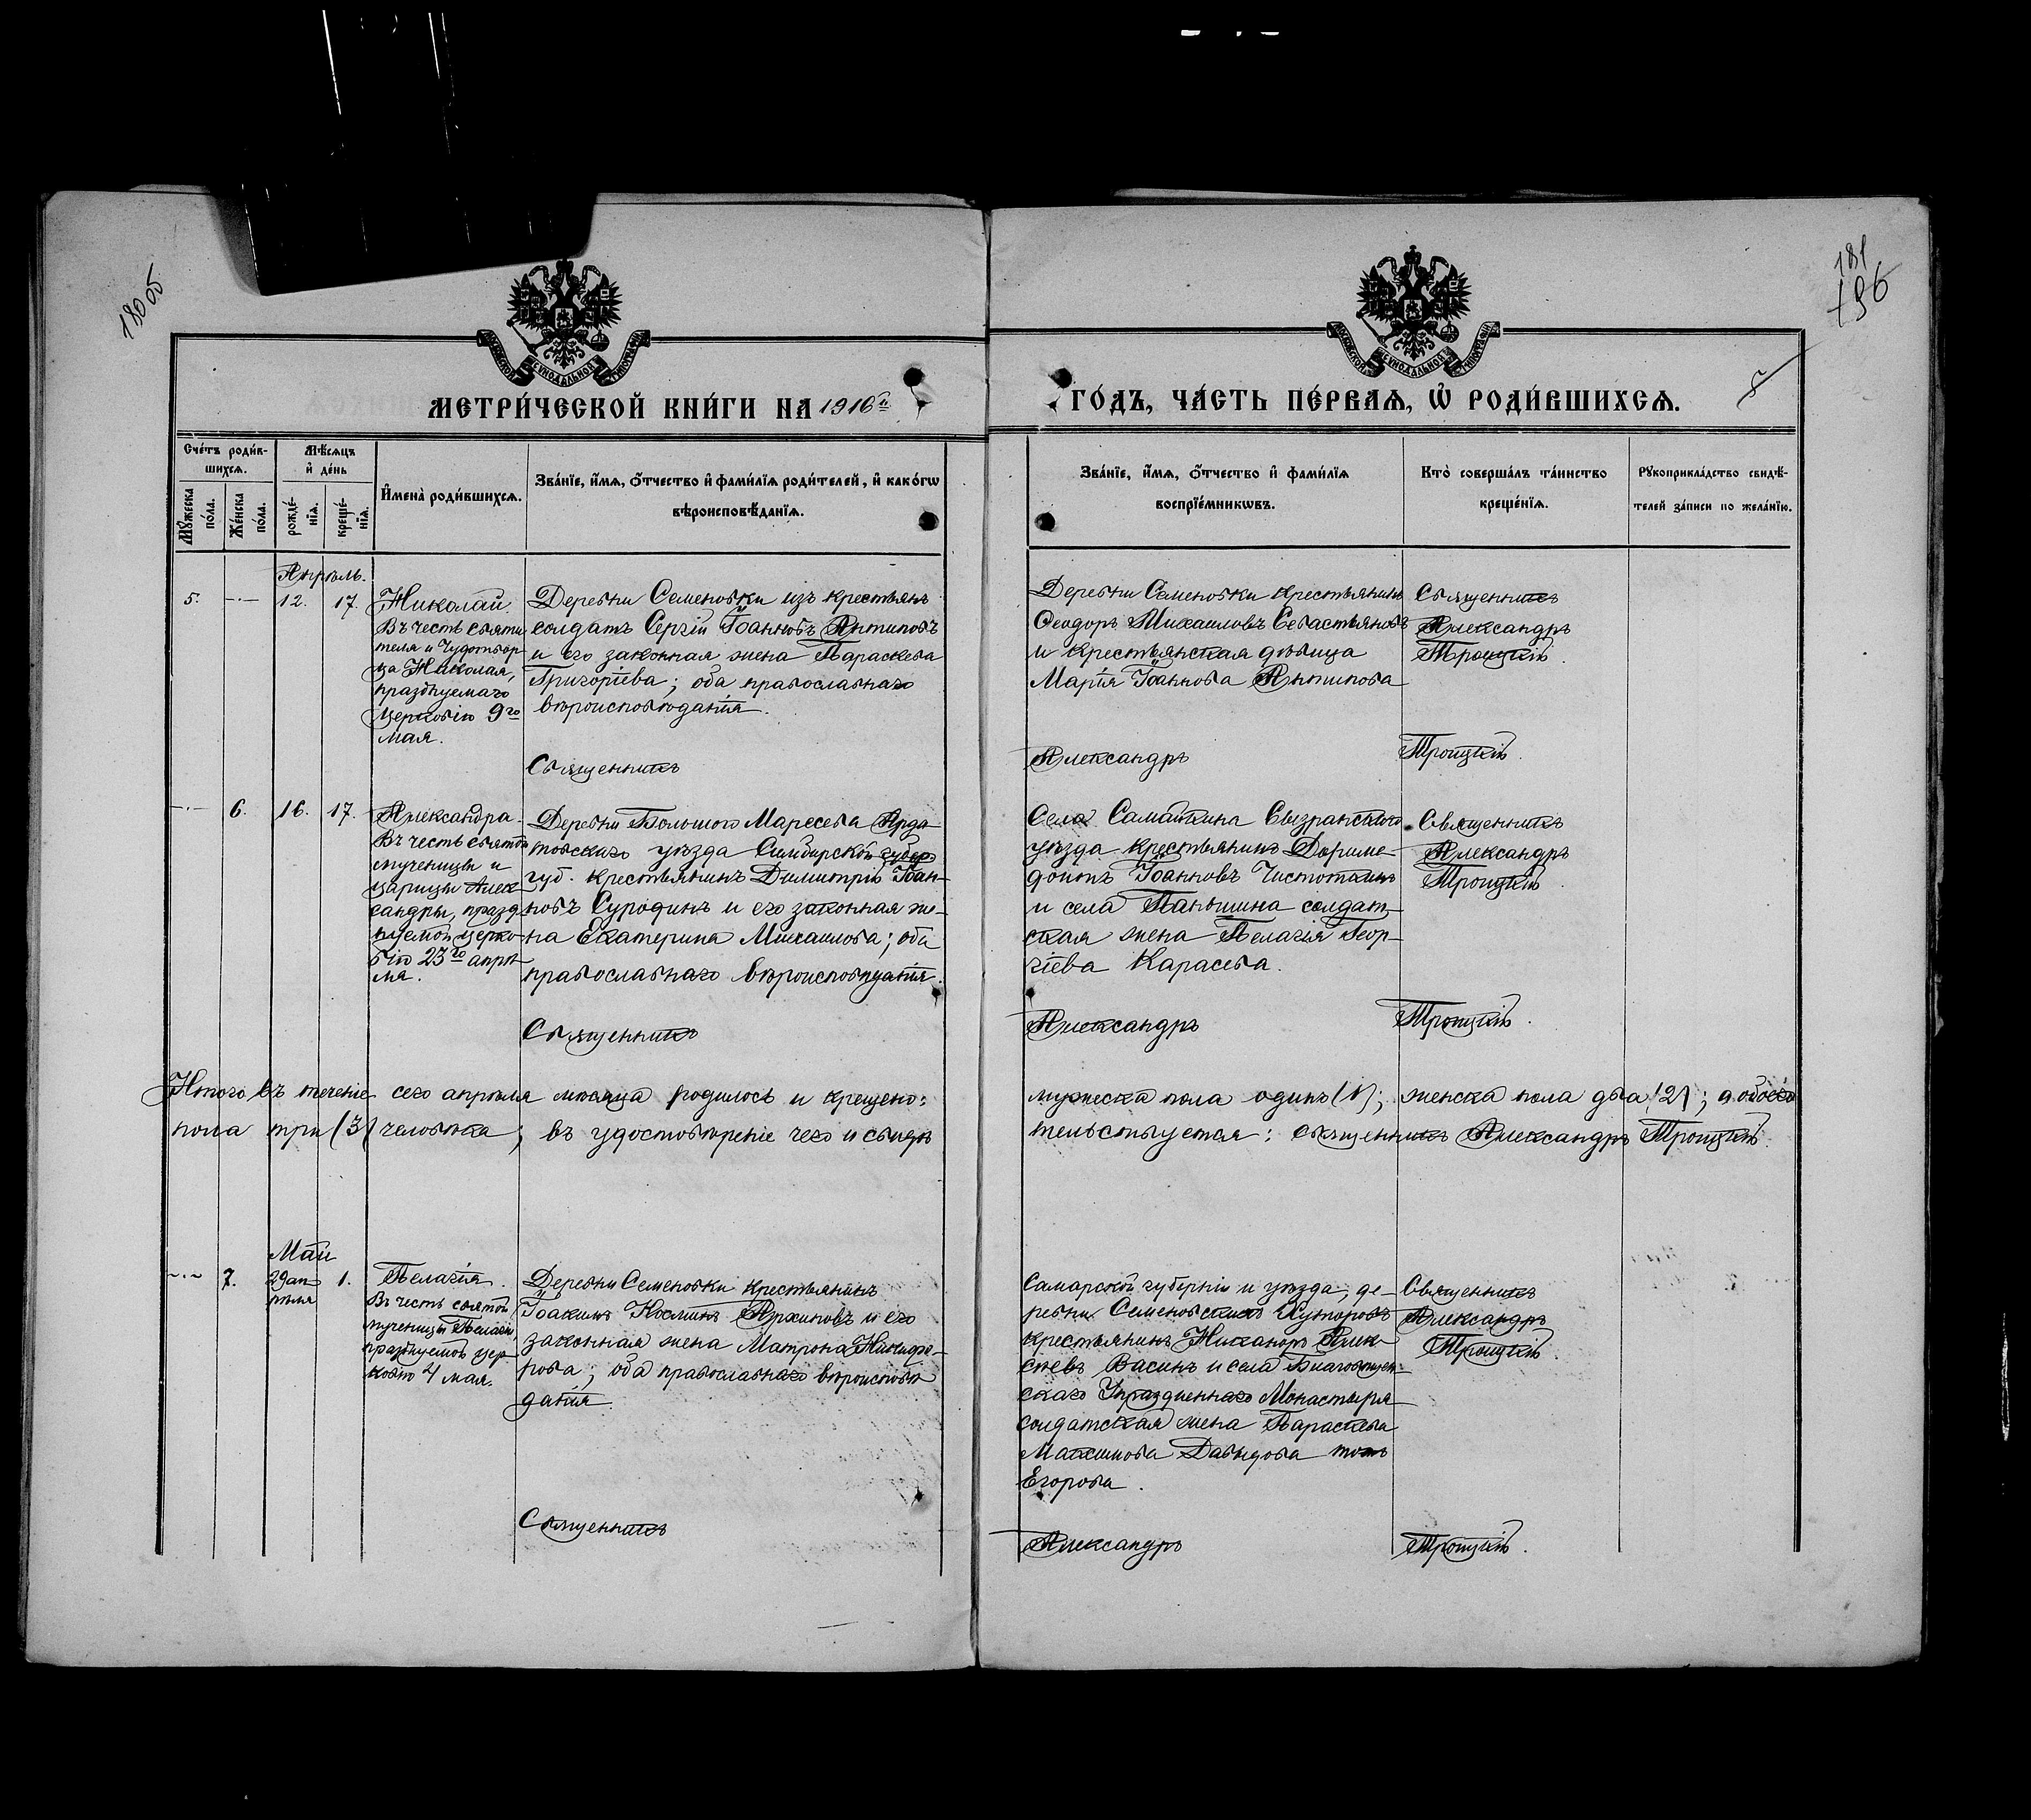 180 об
181
196
5
МЕТРИ́ЧЕСКОЙ КНИ́ГИ НА 1916й
ГО́ДЪ, ЧА́СТЬ ПЕ́РВАѦ, Ѡ҆ РОДИ́ВШИХСѦ.
Сче́тъ роди́в-
шихсѧ.
Мѣ́сѧцъ
и҆ де́нь
Мꙋ́жеска
по́ла.
Же́нска
по́ла.
рожде́-
нїѧ.
креще́-
нїѧ.
И҆мена̀ роди́вшихсѧ.
Зва́нїе, и҆́мѧ, ѻ҆́тчество и҆ фами́лїѧ роди́телей, и҆ како́гѡ
вѣроисповѣ́данїѧ.
Зва́нїе, и҆́мѧ, ѻ҆́тчество и҆ фами́лїѧ
воспрїе́мникѡвъ.
Кто̀ соверша́лъ та́инство
креще́нїѧ.
Рꙋкоприкла́дство свидѣ́-
телей за́писи по жела́нїю.
Апрѣль.
5.
12.
17.
Николай
Въ честь святи
теля и Чудотвор
ца Николая,
празднуемаго
Церковію 9го
мая.
Деревни Семеновки изъ крестьянъ
солдатъ Сергій Іоанновъ Антиповъ
и его законная жена Параскева
Григоріева; оба православнаго
вѣроисповѣданія.
Деревни Семеновки крестьянинъ
Ѳеодоръ Михаиловъ Севастьяновъ
и крестьянская дѣвица
Марія Іоаннова Антипова
Священникъ
Александръ
Троицкій.
Священникъ
Александръ
Троицкій.
6.
16.
17.
Александра.
Въ честь святой
мученицы и
Царицы Алек
сандры, празд
нуемой церко-
вію 23го апрѣ
ля.
Деревни Большого Маресева Арда
товскаго уѣзда Симбирской губер
губ. крестьянинъ Димитрій Іоан-
новъ Суродинъ и его законная же-
на Екатерина Михаилова; оба
православнаго вѣроисповѣданія.
Села Самайкина Сызранскаго
уѣзда крестьянинъ Дориме-
донтъ Іоанновъ Чистоткинъ
и села Паньшина солдат-
ская жена Пелагія Геор-
гіева Карасева.
Священникъ
Александръ
Троицкій
Священникъ
Александръ
Троицкій.
Итого въ теченіе сего апрѣля мѣсяца родилось и крещено:
мужеска пола одинъ (1); женска пола два (2); а обоего
пола три (3) человѣка; въ удостовѣреніе чего и свидѣ
тельствуется: священникъ Александръ Троицкій.
Май
7.
29 ап
рѣля
1.
Пелагія.
Въ честь святой
мученицы Пелагіи,
празднуемой цер-
ковію 4 мая.
Деревни Семеновки крестьянинъ
Іоакимъ Косминъ Архиповъ и его
законная жена Матрона Никифо-
рова; оба православнаго вѣроисповѣ
данія.
Самарской губерніи и уѣзда, де-
ревни Семеновскихъ Хуторовъ
крестьянинъ Никаноръ Алек-
сѣевъ Васинъ и села Благовѣщен-
скаго Упраздненнаго Монастыря
солдатская жена Параскева
Максимова Давыдова
Егорова.
Священникъ
Александръ
Троицкій.
Священникъ
Александръ
Троицкій.